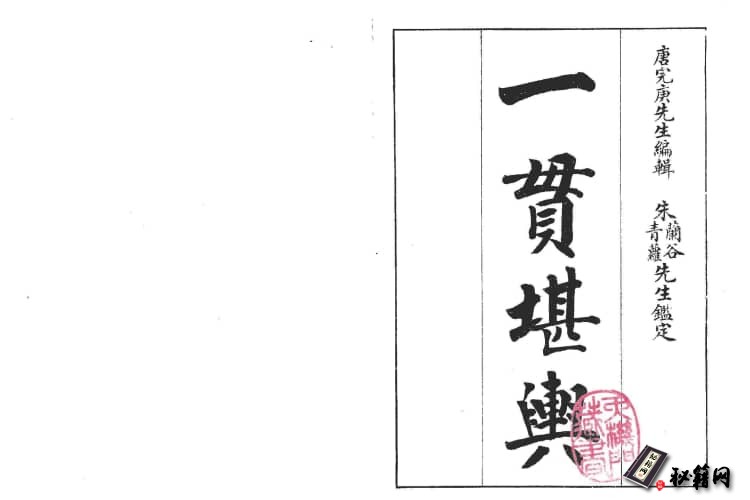 唐完庚先生編輯 朱蘭谷青蘿先生鑑定
一貫堪輿
天機門藏書
秘籍网